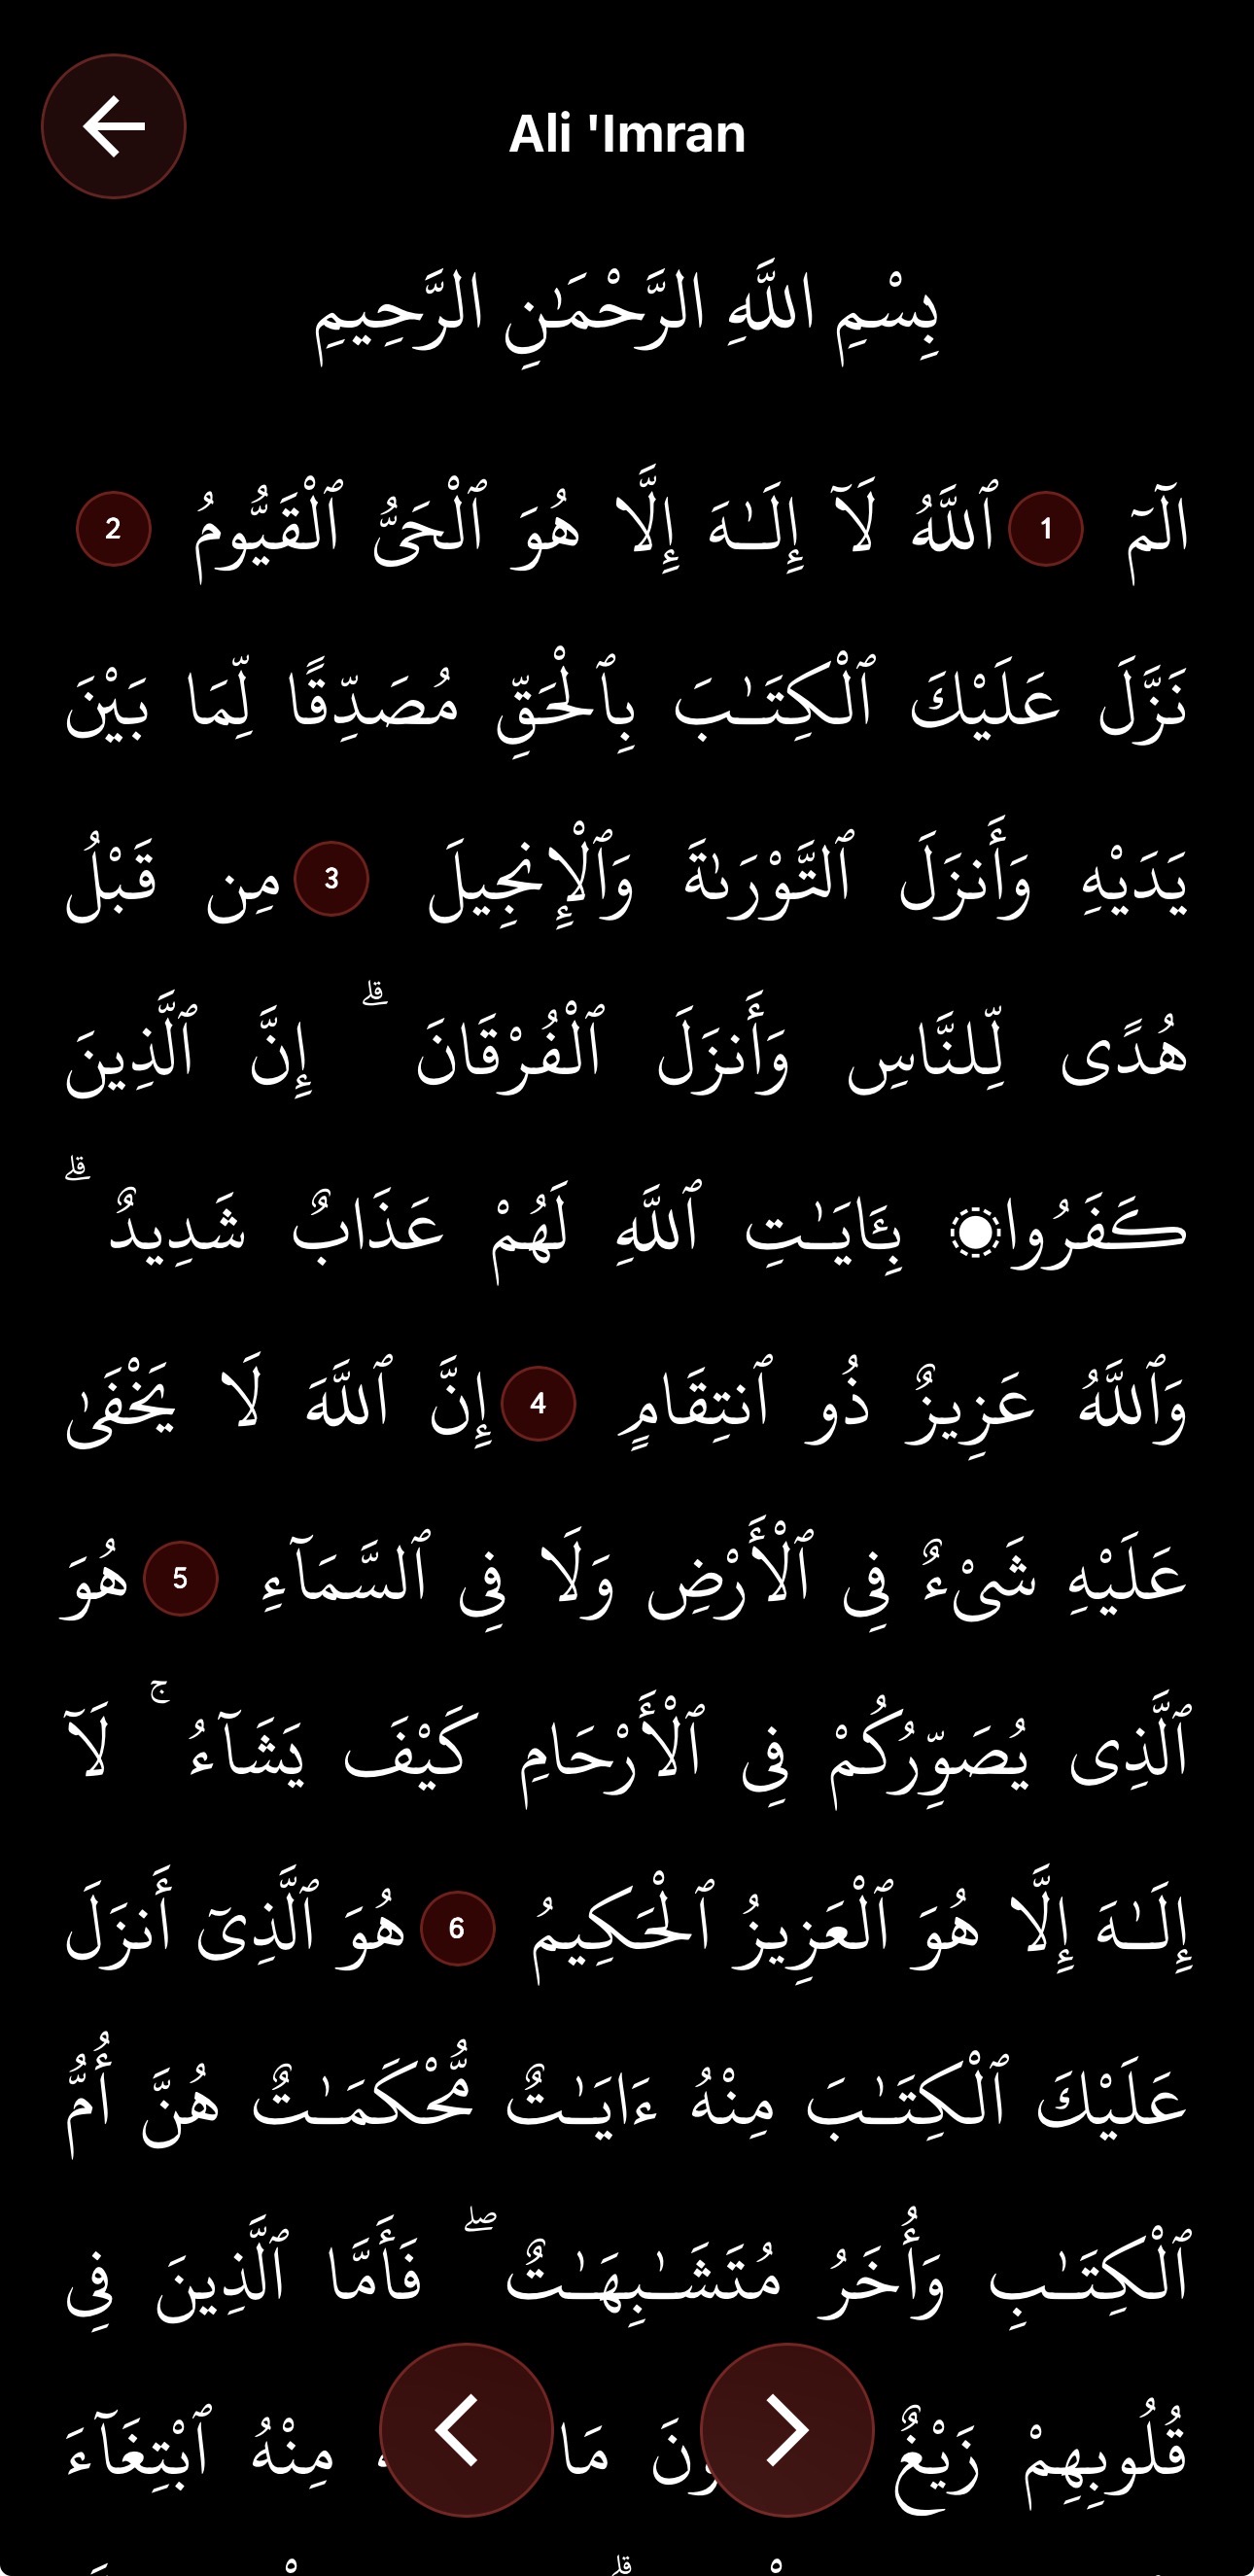 Ali 'Imran
بِسْمِ اللَّهِ الرَّحْمَٰنِ الرَّحِيمِ
الٓمٓ 1 ٱللَّهُ لَآ إِلَـٰهَ إِلَّا هُوَ ٱلْحَىُّ ٱلْقَيُّومُ 2
نَزَّلَ عَلَيْكَ ٱلْكِتَـٰبَ بِٱلْحَقِّ مُصَدِّقًا لِّمَا بَيْنَ
يَدَيْهِ وَأَنزَلَ ٱلتَّوْرَىٰةَ وَٱلْإِنجِيلَ 3 مِن قَبْلُ
هُدًى لِّلنَّاسِ وَأَنزَلَ ٱلْفُرْقَانَ ۗ إِنَّ ٱلَّذِينَ
كَفَرُوا۟ بِـَٔايَـٰتِ ٱللَّهِ لَهُمْ عَذَابٌ شَدِيدٌ ۗ
وَٱللَّهُ عَزِيزٌ ذُو ٱنتِقَامٍ 4 إِنَّ ٱللَّهَ لَا يَخْفَىٰ
عَلَيْهِ شَىْءٌ فِى ٱلْأَرْضِ وَلَا فِى ٱلسَّمَآءِ 5 هُوَ
ٱلَّذِى يُصَوِّرُكُمْ فِى ٱلْأَرْحَامِ كَيْفَ يَشَآءُ ۚ لَآ
إِلَـٰهَ إِلَّا هُوَ ٱلْعَزِيزُ ٱلْحَكِيمُ 6 هُوَ ٱلَّذِىٓ أَنزَلَ
عَلَيْكَ ٱلْكِتَـٰبَ مِنْهُ ءَايَـٰتٌ مُّحْكَمَـٰتٌ هُنَّ أُمُّ
ٱلْكِتَـٰبِ وَأُخَرُ مُتَشَـٰبِهَـٰتٌ ۖ فَأَمَّا ٱلَّذِينَ فِى
قُلُوبِهِمْ زَيْغٌ مَا مِنْهُ ٱبْتِغَآءَ